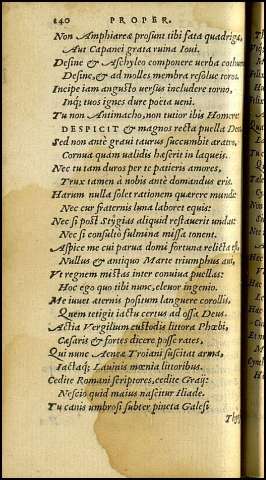 240 PROPER.
Non Amphiareæ prosunt tibi fata quadrigæ,
Aut Capanei grata ruina Ioui.
Desine & Aeschyleo componere uerba cothurno,
Desine, & ad molles membra resolue toros.
Incipe iam angusto uersus includere torno,
Inq; tuos ignes dure poeta ueni.
Tu non Antimacho, non tutior ibis Homero:
DESPICIT & magnos recta puella Deos.
Sed non antè graui taurus succumbit aratro,
Cornua quàm ualidis hæserit in laqueis.
Nec tu tam duros per te patieris amores,
Trux tamen à nobis antè domandus eris.
Harum nulla solet rationem quærere mundi:
Nec cur fraternis luna laboret equis:
Nec si post Stygias aliquid restauerit undas:
Nec si consultò fulmina missa tonent.
Aspice me cui parua domi fortuna relicta est,
Nullus & antiquo Marte triumphus aui,
Vt regnem mistas inter conuiua puellas:
Hoc ego quo tibi nunc, eleuor ingenio.
Me iuuet æternis positum languere corollis,
Quem tetigit iactu certus ad ossa Deus.
Actia Vergilium custodis littora Phœbi,
Cæsaris & fortes dicere posse rates,
Qui nunc Aeneæ Troiani suscitat arma,
Iactaq; Lauinis mœnia littoribus.
Cedite Romani scriptores, cedite Graij:
Nescio quid maius nascitur Iliade.
Tu canis umbrosi subter pineta Galesi